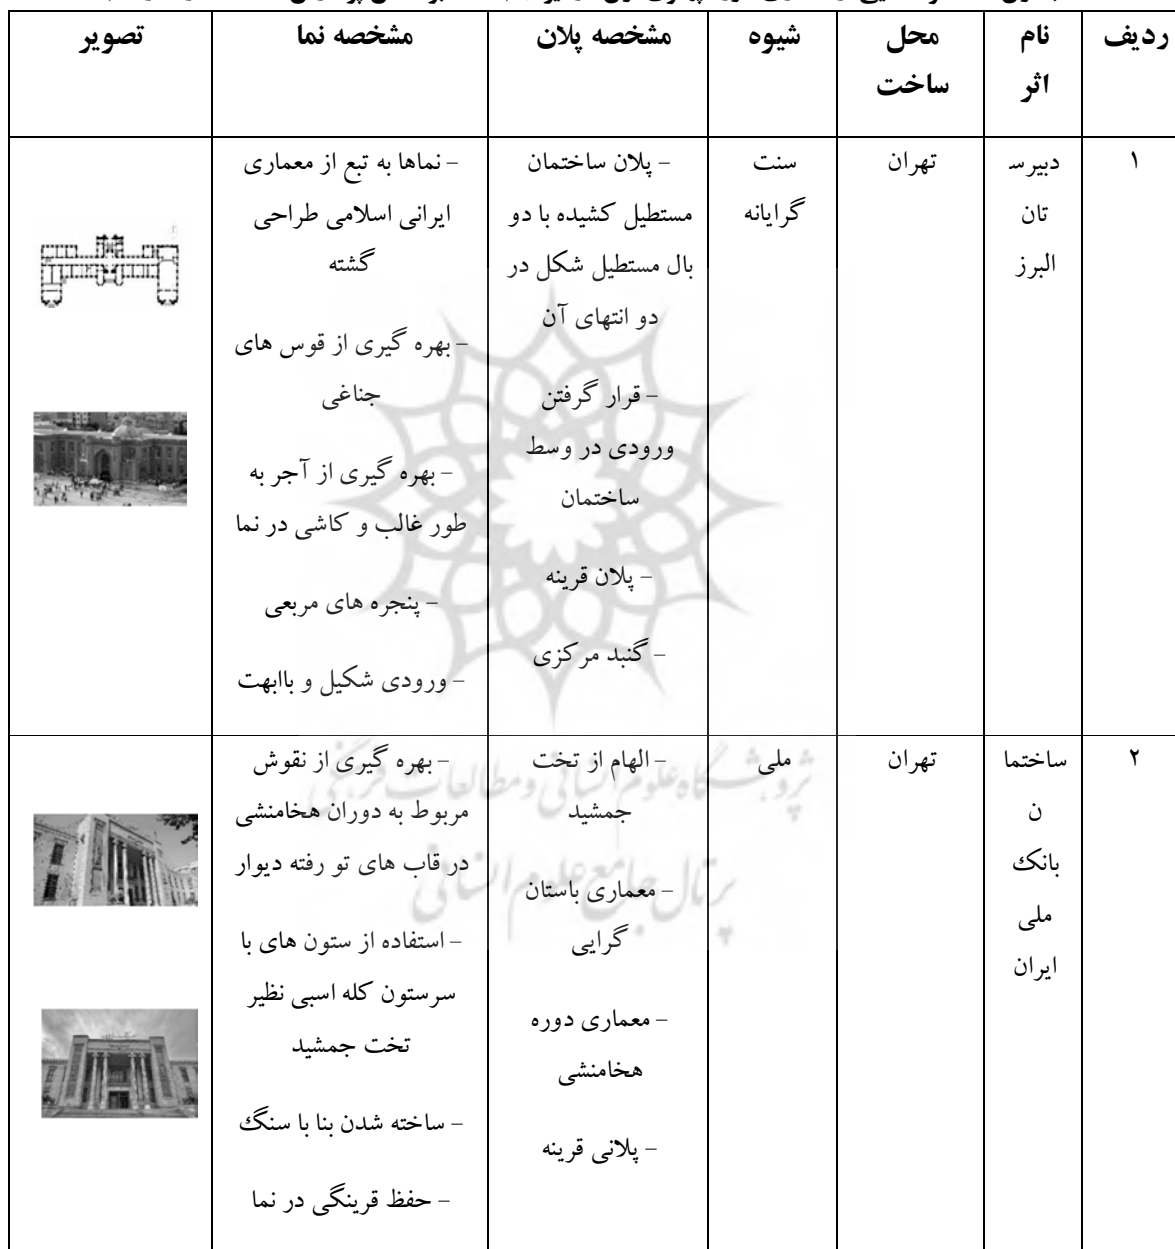 ردیف
نام
اثر
محل
ساخت
شیوه
مشخصه پلان
مشخصه نما
تصویر
۱
دبیرس
تان
البرز
تهران
سنت
گرایانه
- پلان ساختمان
مستطیل کشیده با دو
بال مستطیل شکل در
دو انتهای آن
- قرار گرفتن
ورودی در وسط
ساختمان
- پلان قرینه
- گنبد مرکزی
- نماها به تبع از معماری
ایرانی اسلامی طراحی
گشته
- بهره گیری از قوس های
جناغی
- بهره گیری از آجر به
طور غالب و کاشی در نما
- پنجره های مربعی
- ورودی شکیل و باابهت
۲
ساختما
ن
بانک
ملی
ایران
تهران
ملی
- الهام از تخت
جمشید
- معماری باستان
گرایی
- معماری دوره
هخامنشی
- پلانی قرینه
- بهره گیری از نقوش
مربوط به دوران هخامنشی
در قاب های تو رفته دیوار
- استفاده از ستون های با
سرستون کله اسبی نظیر
تخت جمشید
- ساخته شدن بنا با سنگ
- حفظ قرینگی در نما
پژوهشگاه علوم انسانی و مطالعات فرهنگی
پرتال جامع علوم انسانی